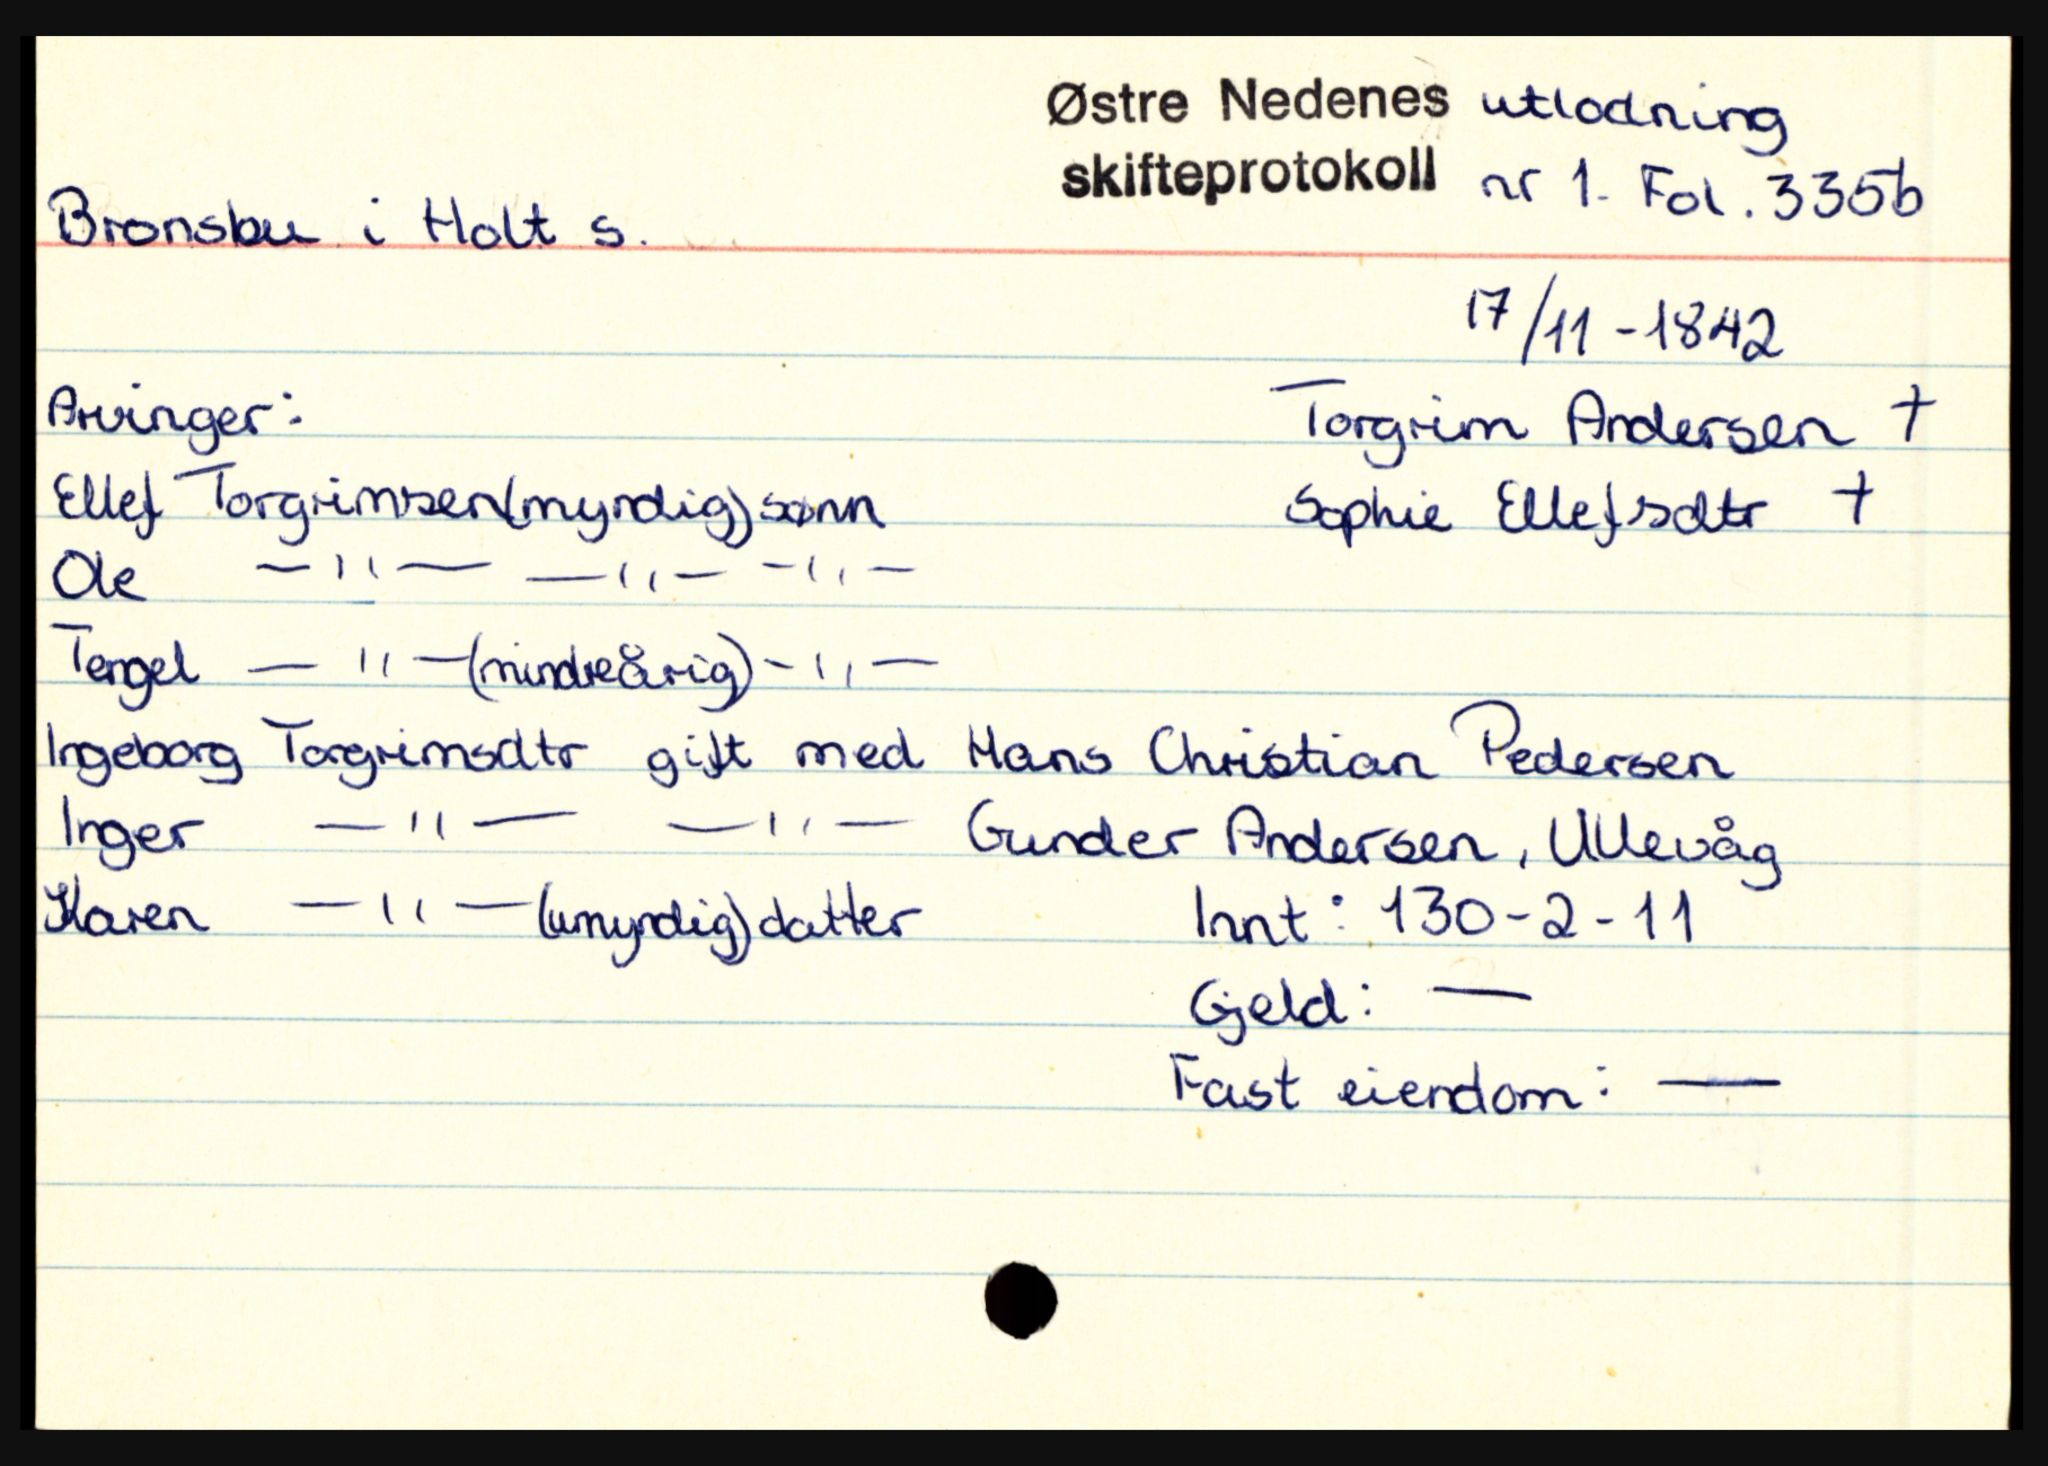 Østre Nedenes utlodning
skifteprotokoll nr 1. Fol. 335b
Bronsbu i Holt s.
17/11-1842
Arvinger:
Torgrim Andersen †
Ellef Torgrimsen (myndig) sønn
Sophie Ellefsdtr †
Ole —"— —"— —"—
Tengel —"— (mindreårig) —"—
Ingeborg Torgrimsdtr gift med Hans Christian Pedersen
Inger —"— —"— Gunder Andersen, Ullevåg
Karen —"— (umyndig) datter
Innt: 130-2-11
Gjeld: —
Fast eiendom: —